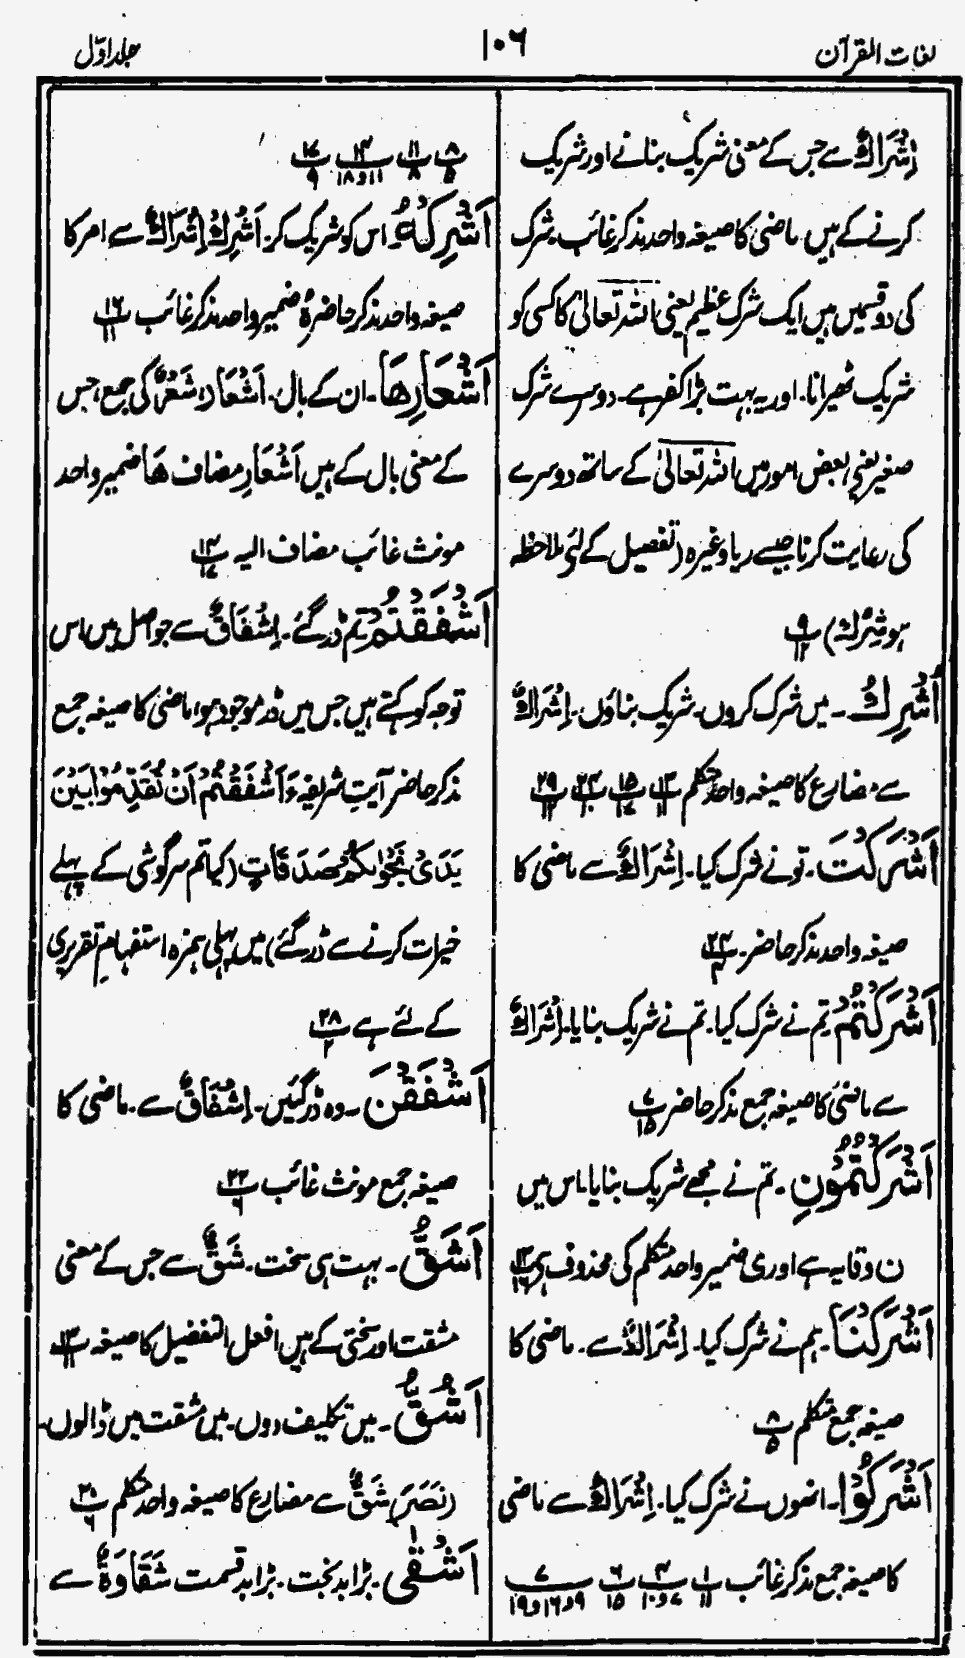 لغات القرآن
۱۰۶
جلد اوّل
اِشْرَاكٌ سے جس کے معنی شریک بنانے اور شریک
کرنے کے ہیں۔ ماضی کا صیغہ واحد مذکر غائب۔ شرک
کی دو قسمیں ہیں ایک شرک عظیم یعنی اللہ تعالیٰ کا کسی کو
شریک ٹھیرانا۔ اور یہ بہت بڑا کفر ہے۔ دوسرے شرک
صغیر یعنی بعض امور میں اللہ تعالیٰ کے ساتھ دوسرے
کی رعایت کرنا جیسے ریا وغیرہ (تفصیل کے لئے ملاحظہ
ہو شِرْك) پ۹ ۱۲
اُشْرِكُ۔ میں شرک کروں۔ شریک بناؤں۔ اِشْرَاكٌ
سے مضارع کا صیغہ واحد متکلم
اَشْرَكْتَ۔ تو نے شرک کیا۔ اِشْرَاكٌ سے ماضی کا
صیغہ واحد مذکر حاضر۔ پ۲۴ ۴
اَشْرَكْتُمْ۔ تم نے شرک کیا۔ تم نے شریک بنایا۔ اِشْرَاكٌ
سے ماضی کا صیغہ جمع مذکر حاضر پ۷ ۱۵
اَشْرَكْتُمُوْنِ۔ تم نے مجھے شریک بنایا۔ اس میں
ن وقایہ ہے اور ی ضمیر واحد متکلم کی محذوف ہے پ۱۳ ۱۶
اَشْرَكْنَا۔ ہم نے شرک کیا۔ اِشْرَاكٌ سے۔ ماضی کا
صیغہ جمع متکلم پ۸ ۵
اَشْرَكُوْا۔ انھوں نے شرک کیا۔ اِشْرَاكٌ سے ماضی
کا صیغہ جمع مذکر غائب پ۱ ۱۱ پ۴ ۷و۱۰ پ۶ ۱۵ پ۷ ۹و۱۶و۱۹
پ۸ ۵ پ۱۱ ۸ پ۱۴ ۱۱و۱۸ پ۱۷ ۹
اَشْرِكْهُ۔ اس کو شریک کر۔ اَشْرِكْ اِشْرَاكٌ سے امر کا
صیغہ واحد مذکر حاضر۔ هُ ضمیر واحد مذکر غائب پ۱۶ ۱۱
اَشْعَارِهَا۔ ان کے بال۔ اَشْعَار، شَعْرٌ کی جمع، جس
کے معنی بال کے ہیں اَشْعَارِ مضاف هَا ضمیر واحد
مونث غائب مضاف الیہ پ۱۴ ۱۷
اَشْفَقْتُمْ۔ تم ڈر گئے۔ اِشْفَاقٌ سے جو اصل میں اس
توجہ کو کہتے ہیں جس میں ڈر موجود ہو، ماضی کا صیغہ جمع
مذکر حاضر آیتِ شریفہ ءَاَشْفَقْتُمْ اَنْ تُقَدِّمُوْا بَيْنَ
يَدَىْ نَجْوٰىكُمْ صَدَقَاتٍ (کیا تم سرگوشی کے پہلے
خیرات کرنے سے ڈر گئے) میں پہلی ہمزہ استفہامِ تقریری
کے لئے ہے پ۲۸ ۲
اَشْفَقْنَ۔ وہ ڈر گئیں۔ اِشْفَاقٌ سے۔ ماضی کا
صیغہ جمع مونث غائب پ۲۲ ۶
اَشَقُّ۔ بہت ہی سخت۔ شَقٌّ سے جس کے معنی
مشقت اور سختی کے ہیں افعل التفضیل کا صیغہ پ۱۳ ۱۱
اَشُقُّ۔ میں تکلیف دوں۔ میں مشقت میں ڈالوں۔
(نَصَرَ) شَقٌّ سے مضارع کا صیغہ واحد متکلم پ۲۰ ۶
اَشْقٰى۔ بڑا بدبخت۔ بڑا بد قسمت شَقَاوَةٌ سے